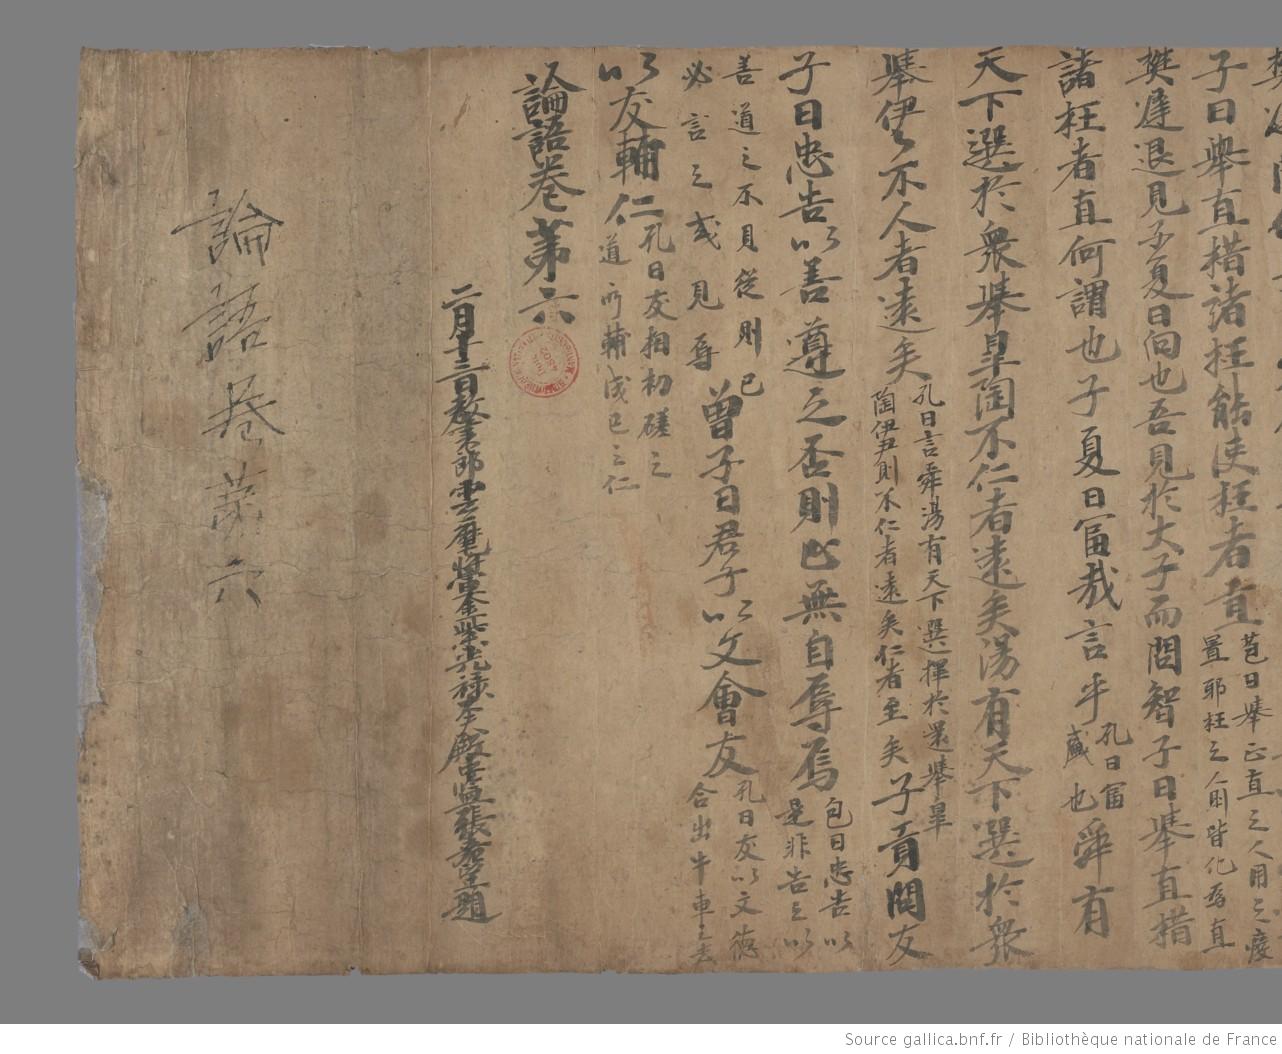 子曰舉直措諸枉能使枉者直 苞曰舉正直之人用之廢
置耶枉之人則皆化為直
樊遲退見子夏曰向也吾見於夫子而問智子曰舉直措
諸枉者直何謂也子夏曰富哉言乎 孔曰富
盛也 舜有
天下選於眾舉皋陶不仁者遠矣湯有天下選於眾
舉伊尹不人者遠矣 孔曰言舜湯有天下選擇於眾舉皋
陶伊尹則不仁者遠矣仁者至矣 子貢問友
子曰忠告以善導之否則止無自辱焉 包曰忠告以
是非告之以
善道之不見從則已
必言之或見辱 曾子曰君子以文會友 孔曰友以文德
合出牛車之去
以友輔仁 孔曰友相切磋之
道所輔成己之仁
論語卷第六
二月十三日教書郎雲麾將軍金紫光祿大殿中監張希望題
論語卷苐六
Source gallica.bnf.fr / Bibliothèque nationale de France